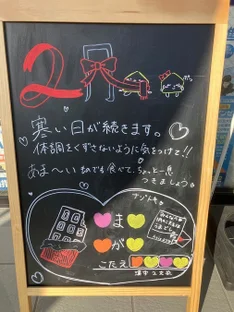 2月
寒い日が続きます。
体調をくずさないように気をつけて!!
あま〜いものでも食べて、ちょっと一息
つきましょう。
ナゾトキ
ま
が
こたえ